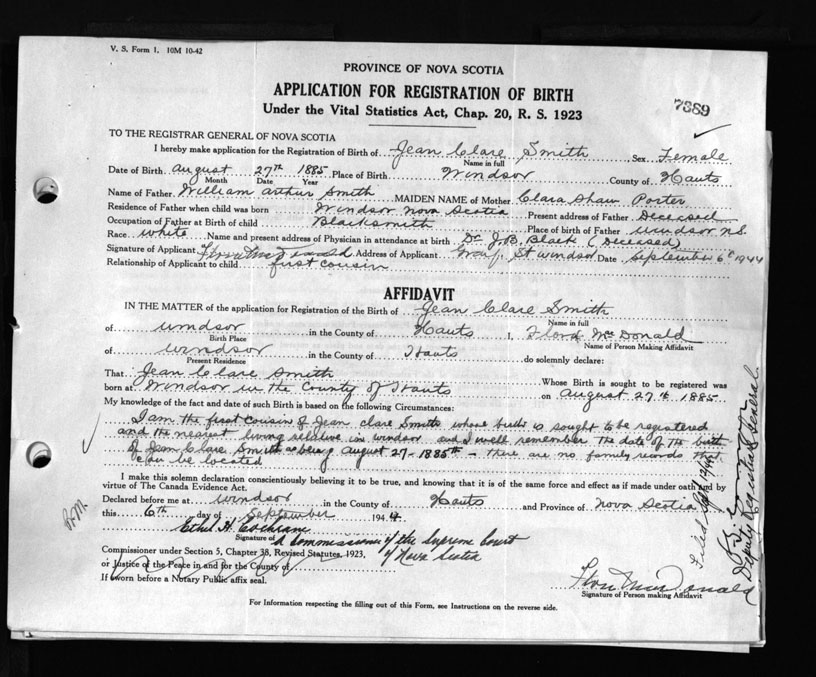 V. S. Form 1. 10M 10-42
PROVINCE OF NOVA SCOTIA
APPLICATION FOR REGISTRATION OF BIRTH
Under the Vital Statistics Act, Chap. 20, R. S. 1923
7889
TO THE REGISTRAR GENERAL OF NOVA SCOTIA
I hereby make application for the Registration of Birth of Jean Clare Smith Sex Female
Name in full
Date of Birth August 27th 1885 Place of Birth Windsor County of Hants
Month Date Year
Name of Father William Arthur Smith MAIDEN NAME of Mother Clara Shaw Porter
Residence of Father when child was born Windsor Nova Scotia Present address of Father Deceased
Occupation of Father at Birth of child Blacksmith Place of birth of Father Windsor N.S.
Race White Name and present address of Physician in attendance at birth Dr. J.B. Black (Deceased)
Signature of Applicant Address of Applicant St Windsor Date September 6th 1944
Relationship of Applicant to child first cousin
AFFIDAVIT
IN THE MATTER of the application for Registration of the Birth of Jean Clare Smith
Name in full
of Windsor in the County of Hants I, McDonald
Birth Place Name of Person Making Affidavit
of Windsor in the County of Hants do solemnly declare:
Present Residence
That Jean Clare Smith Whose Birth is sought to be registered was
born at Windsor in the County of Hants on August 27th 1885
My knowledge of the fact and date of such Birth is based on the following Circumstances:
I am the first cousin of Jean Clare Smith whose birth is sought to be registered
and the nearest living relative in Windsor and I well remember the date of the birth
of Jean Clare Smith as being August 27 - 1885th - there are no family records that
can be located
I make this solemn declaration conscientiously believing it to be true, and knowing that it is of the same force and effect as if made under oath and by
virtue of The Canada Evidence Act.
Declared before me at Windsor in the County of Hants and Province of Nova Scotia
this 6th day of September 1944.
Ethel H. Cochrane
Signature of A Commissioner of the Supreme Court
of Nova Scotia
Commissioner under Section 5, Chapter 38, Revised Statutes, 1923,
or Justice of the Peace in and for the County of
If sworn before a Notary Public affix seal.
MacDonald
Signature of Person making Affidavit
For Information respecting the filling out of this Form, see Instructions on the reverse side.
Filed Sept 12/44
Deputy Registrar General